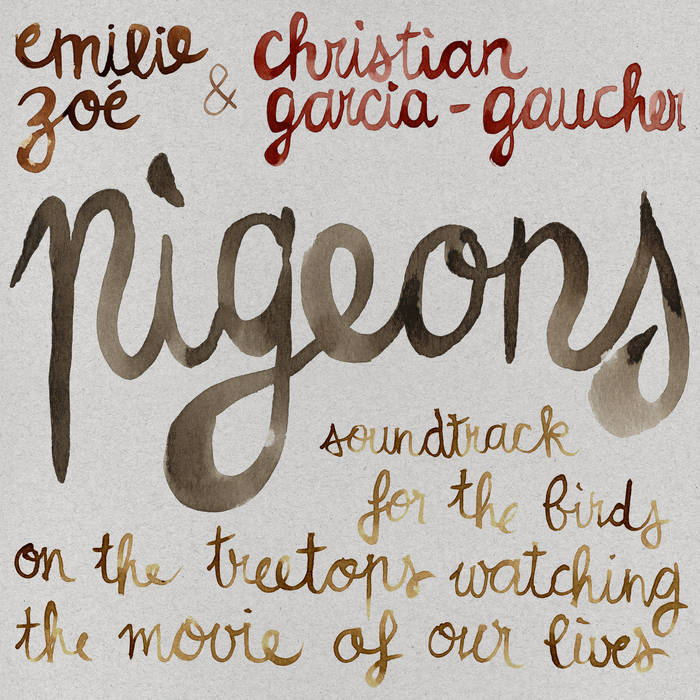 emilie zoé & christian garcia-gaucher
pigeons
soundtrack
for the birds
on the treetops watching
the movie of our lives